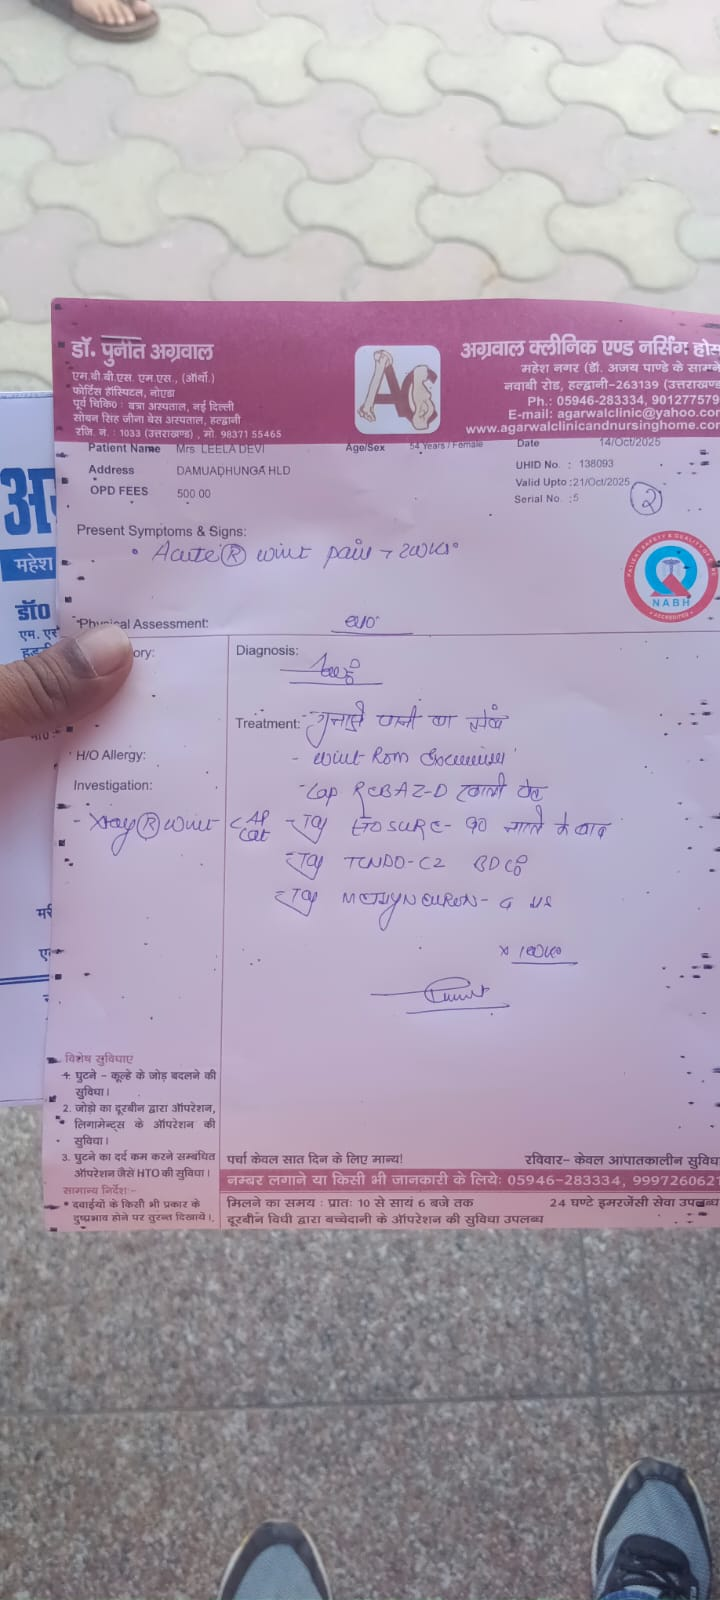 डॉ. पुनीत अग्रवाल
एम.बी.बी.एस. एम.एस., (ऑर्थो.)
फोर्टिस हॉस्पिटल, नोएडा
पूर्व चिकि० : बत्रा अस्पताल, नई दिल्ली
सोबन सिंह जीना बेस अस्पताल, हल्द्वानी
रजि. न. : 1033 (उत्तराखण्ड) , मो. 98371 55465
AC
अग्रवाल क्लीनिक एण्ड नर्सिंग होम
महेश नगर (डॉ. अजय पाण्डे के सामने
नवाबी रोड, हल्द्वानी-263139 (उत्तराखण्ड
Ph.: 05946-283334, 901277579
E-mail: agarwalclinic@yahoo.co
www.agarwalclinicandnursinghome.com
Patient Name Mrs LEELA DEVI Age/Sex 54 Years / Female Date 14/Oct/2025
Address DAMUADHUNGA HLD UHID No. : 138093
OPD FEES 500.00 Valid Upto :21/Oct/2025
Serial No. :5 2
Present Symptoms & Signs:
Acute (R) wrist pain → 2wks
PATIENT SAFETY & QUALITY OF CARE
NABH
ACCREDITED
Physical Assessment:
ory:
Diagnosis:
Treatment: गुनगुने पानी का सेंक
H/O Allergy:
- wrist Rom Exercises
Investigation:
- Cap REBAZ-D खाली पेट
- Xray (R) wrist AP Lat
- Tab ETOSURE-90 नाश्ते के बाद
- Tab TENDO-C2 BD
- Tab METHYNEURON-G HS
x 1wk
अ
महेश
डॉ०
एम. एस
विशेष सुविधाएं
1. घुटने - कूल्हे के जोड़ बदलने की
सुविधा।
2. जोड़ो का दूरबीन द्वारा ऑपरेशन,
लिगामेन्ट्स के ऑपरेशन की
सुविधा।
3. घुटने का दर्द कम करने सम्बंधित
ऑपरेशन जैसे HTO की सुविधा।
सामान्य निर्देश:-
* दवाईयों के किसी भी प्रकार के
दुष्प्रभाव होने पर तुरन्त दिखायें।
पर्चा केवल सात दिन के लिए मान्य! रविवार- केवल आपातकालीन सुविधा
नम्बर लगाने या किसी भी जानकारी के लिये: 05946-283334, 999726062
मिलने का समय : प्रातः 10 से सायं 6 बजे तक 24 घण्टे इमरजेंसी सेवा उपलब्ध
दूरबीन विधी द्वारा बच्चेदानी के ऑपरेशन की सुविधा उपलब्ध